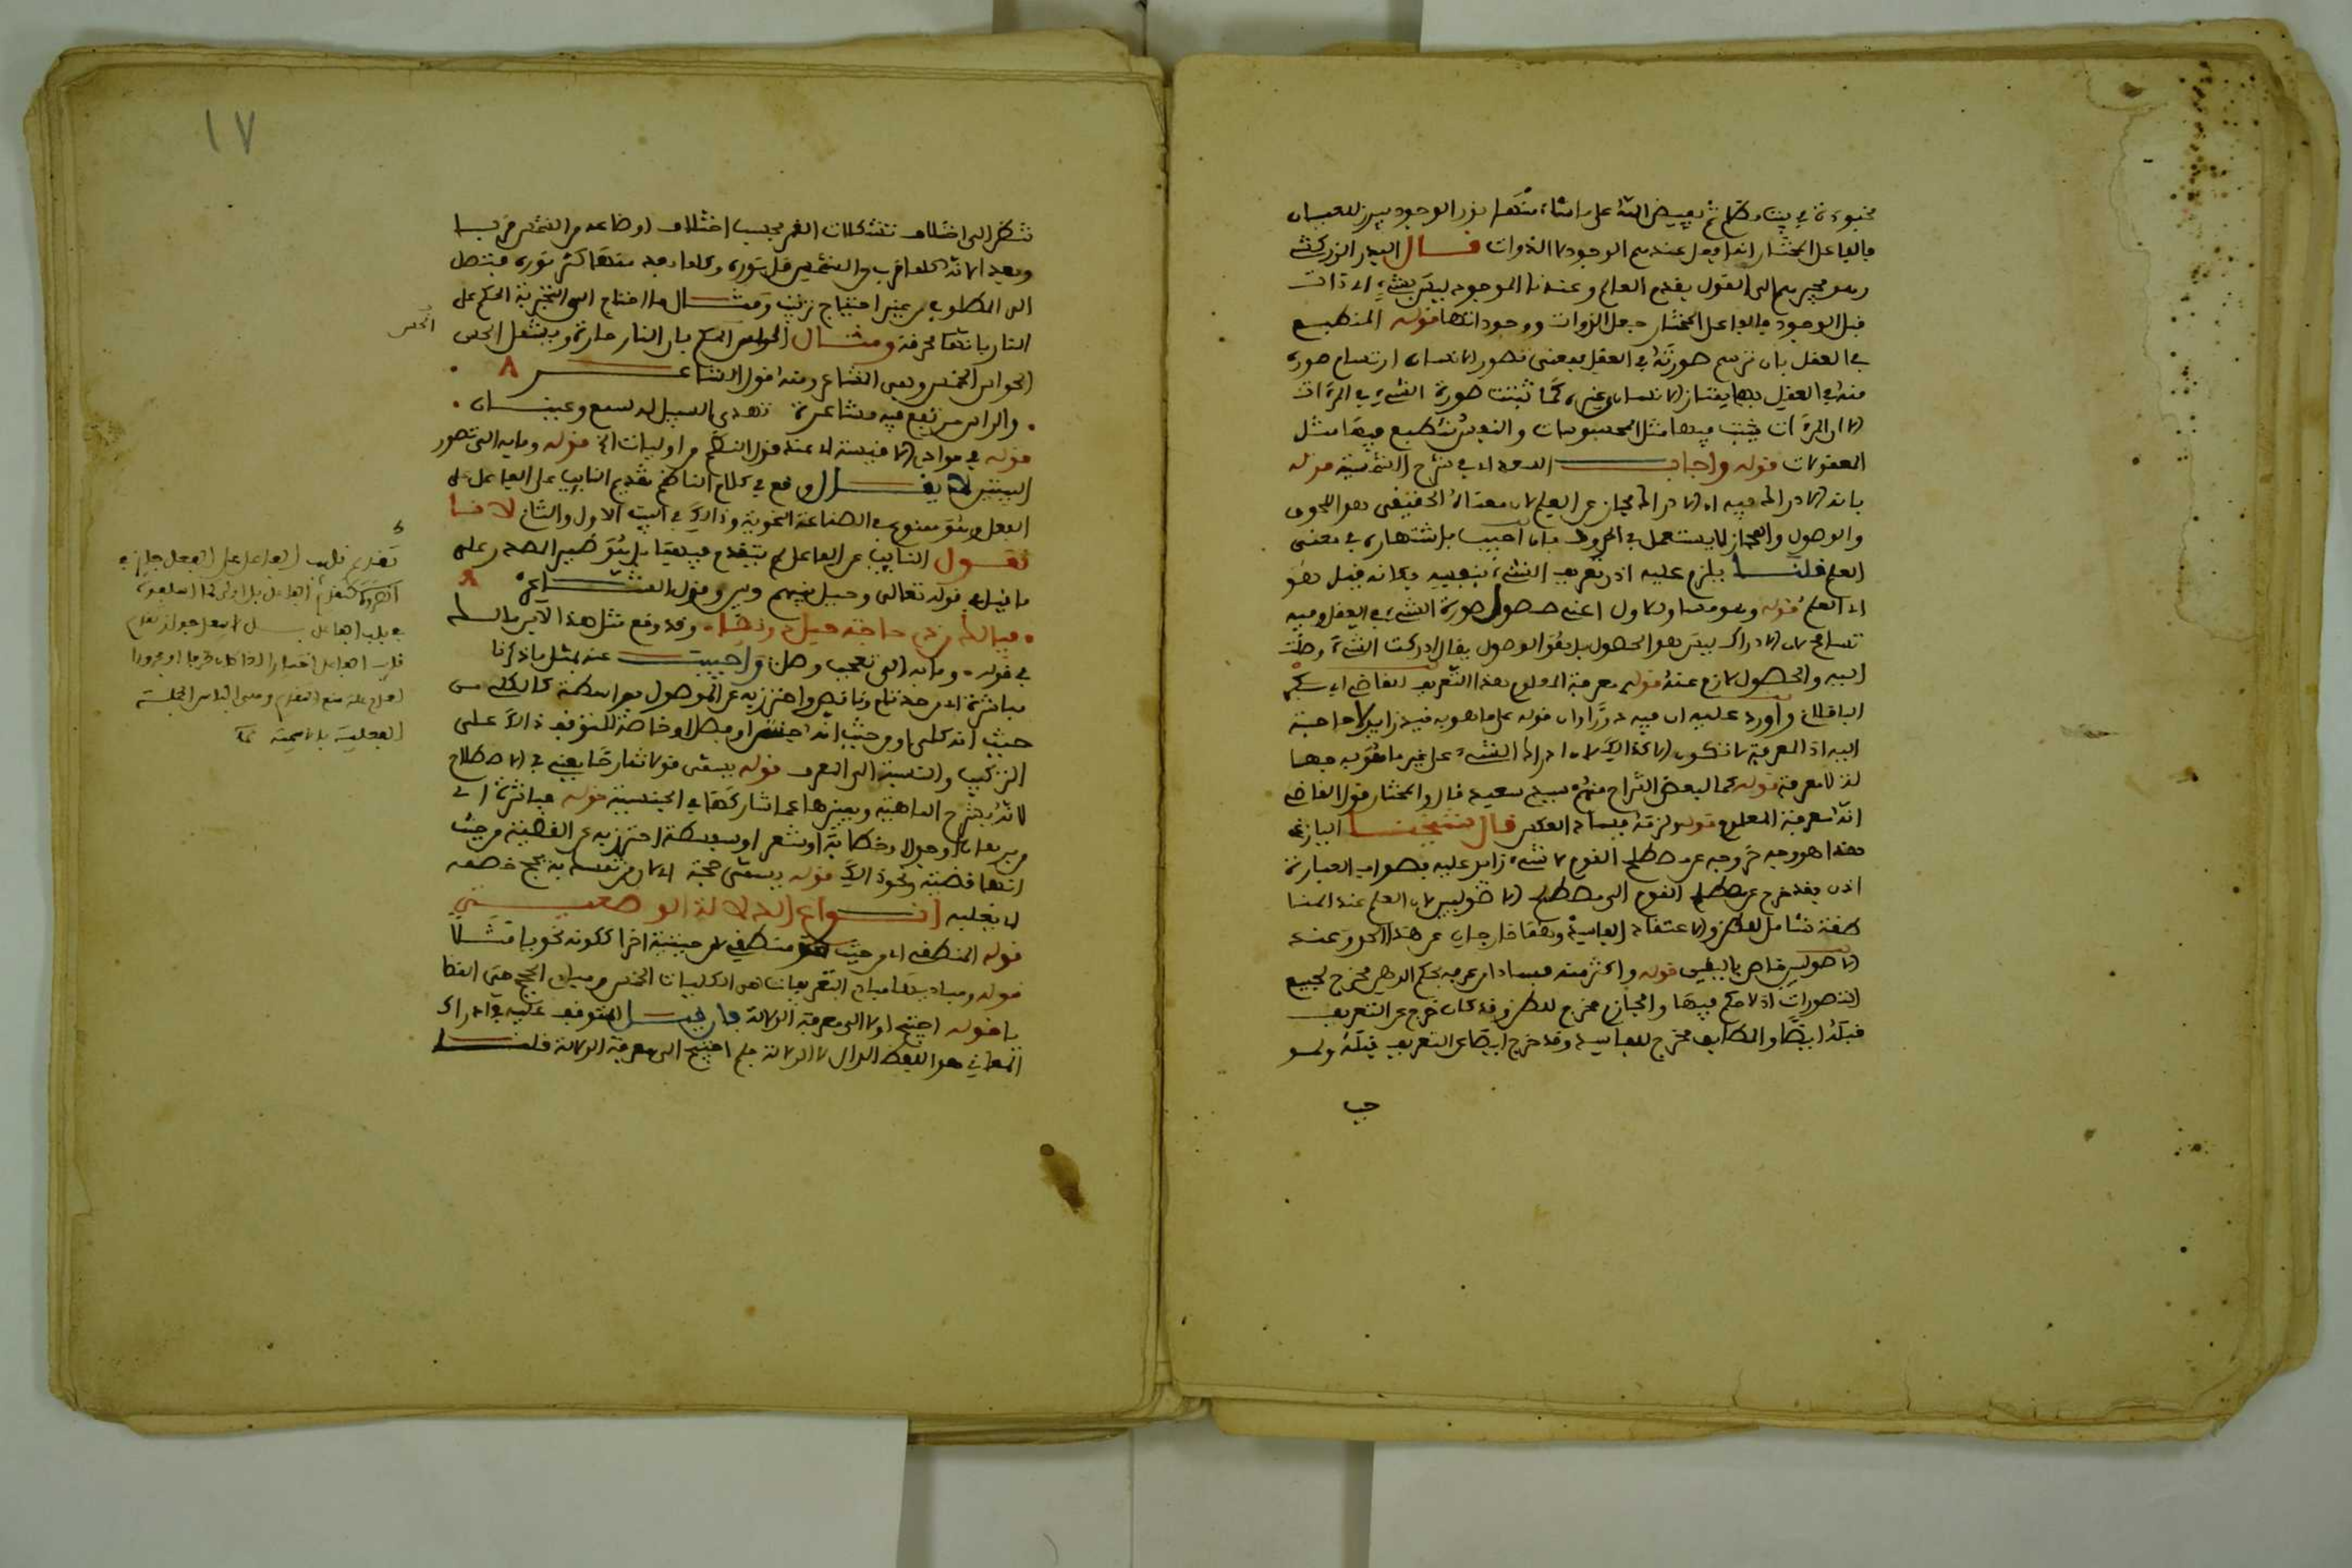 مخبوءة في بيت مظلم ثم يفيض الله على ما شاء منها نور الوجود فيبرز للعيان
فالفاعل المختار انما يفعل عندهم الوجود لا الذوات قال البدر الزركشي
وهو يجرهم الى القول بقدم العالم وعندنا الموجود ليس بشيء ولا ذات
قبل الوجود فالفاعل المختار جعل الذوات ووجوداتها قوله المنطبع
في العقل بان ترسم صورته في العقل فمعنى تصور الانسان ارتسام صورة
منه في العقل بها يمتاز الانسان عن غيره كما تثبت صورة الشيء في المرءات
الا ان المرءات يثبت فيها مثل المحسوسات والنفس تنطبع فيها مثل
المعقولات قوله واجاب السعد اي في شرح الشمسية قوله
بانه الادراك فيه ان الادراك مجاز عن العلم لان معناه الحقيقي هو اللحوق
والوصول والمجاز لا يستعمل في الحدود فان اجيب باشتهاره في معنى
العلم قلنا يلزم عليه اذن تعريف الشيء بنفسه وكانه قيل هو
اي العلم قوله وهو مساو للاول اعني حصول صورة الشيء في العقل وفيه
تسامح لان الادراك ليس هو الحصول بل هو الوصول يقال ادركت الشيء وصلت
اليه والحصول لازم عنه قوله معرفة المعلوم هذا التعريف للقاضي ابي بكر
الباقلاني واورد عليه ان فيه دورا وان قوله على ما هو به قيد زايد لا حاجة
اليه اذ المعرفة لا تكون الا كذالك لان ادراك الشيء على غير ما هو به جهل
لا معرفة قوله كما لبعض الشراح منهم سيدي سعيد قال والمختار قول القاضي
انه معرفة المعلوم قوله لزمه فساد العكس قال شيخنا
هذا هو وجه خروجه عن مصطلح القوم لا شيء زايد عليه فصواب العبارة
اذن فقد خرج عن مصطلح القوم الى مصطلح الاصوليين لان العلم عند المناطقة
صفة شامل للظن والاعتقاد الفاسد وهما خارجان عن هذا الحد وعند
الاصوليين خاص باليقين قوله واكثر منه فسادا من عرفه بحكم الذهن مخرج لجميع
التصورات اذ لا حكم فيها والجازم مخرج للظن وقد كان خرج عن التعريف
قبله ايضا والمطابق مخرج للفاسد وقد خرج ايضا عن التعريف قبله ولو
١٧
تنظر الى اختلاف تشكلات القمر بحسب اختلاف اوضاعه من الشمس قربا
وبعدا لانه كلما قرب من الشمس قل نوره وكلما بعد منها كثر نوره فينتقل
الى المطلوب من غير احتياج ترتيب ومثال ما احتاج الى التجربة الحكم على
النار بانها محرقة ومثال الحواس الحكم بان النار حارة ويشمل الحس
الحس
الحواس الخمس وهي المشاعر ومنه قول الشاعر
والراس مرتفع فيه مشاعرة تهدي السبيل له سمع وعينان
قوله في مواد الاقيسة اي عند قول الناظم من اوليات الخ قوله وما به الى تصور
البيتين لا يقال وقع في كلام الناظم تقديم النايب عن الفاعل على
الفعل وهو ممنوع في الصناعة النحوية وذالك في البيت الاول والثاني لانا
نقول النايب عن الفاعل لم يتقدم فيهما بل هو ضمير المصدر على
ما قيل في قوله تعالى وحيل بينهم وبين وقول الشاعر
فيالك من ذي حاجة حيل دونها وقد وقع مثل هذا لابن مالك
في قوله وما به الى تعجب وصل واجيب عنه بمثل ما ذكرنا
مباشرة اي من حد تام وناقص واحترز به عن الموصول بواسطة كالكلي من
حيث انه كلي او من حيث انه جنس او فصل او خاصة لتوقف ذالك على
التركيب والنسبة الى المعرف قوله يسمى قولا شارحا يعني في الاصطلاح
لانه يشرح الماهية ويميزها عما شاركها في الجنسية قوله مباشرة اي
من برهان او جدل او خطابة او شعر او سفسطة احترز به عن القضية من حيث
انها قضية ونحو ذالك قوله يسمى حجة اي لان من تمسك به يحج خصمه
اي يغلبه انواع الدلالة الوضعية
قوله المنطقي اي من حيث هو منطقي لا من حيثية اخرى ككونه نحويا مثلا
قوله ومباديها مبادي التعريفات هي الكليات الخمس ومبادي الحجج هي القضايا
قوله احتيج اولا الى معرفة الدلالة فان قيل المتوقف عليه في ادراك
المعاني هو اللفظ الدال لا الدلالة فلم احتيج الى معرفة الدلالة قلنا
تقديم نايب الفاعل على الفعل جايز في
الضرورة
في باب الفاعل
نايب الفاعل اختيارا اذا كان ظرفا او مجرورا
لعدم علة منع التقديم وهي التباس الجملة
الفعلية بالاسمية